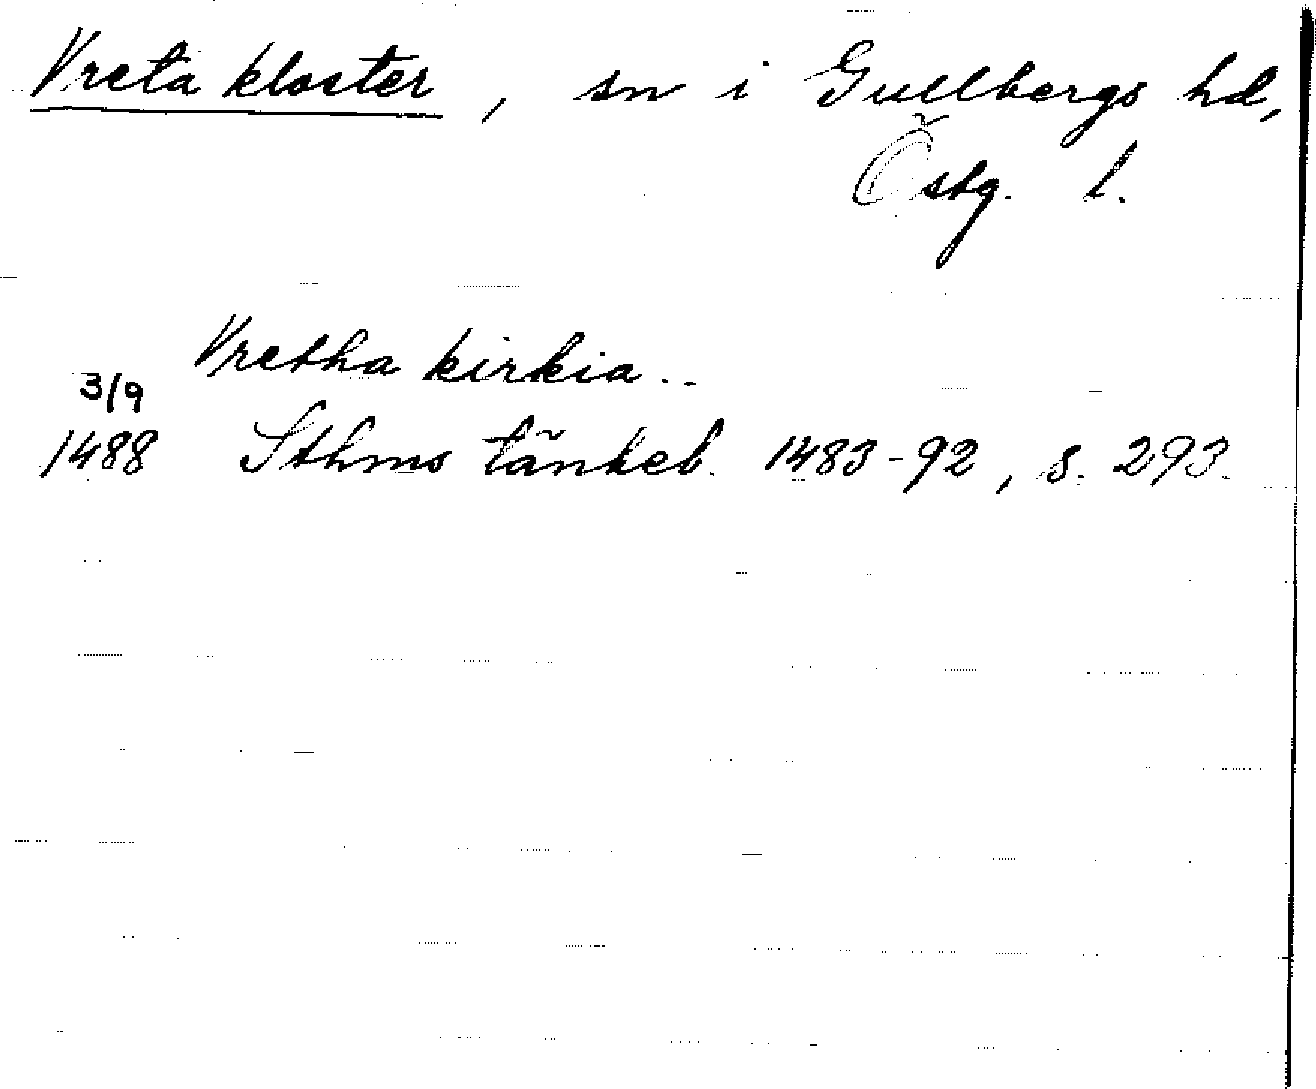 Vreta kloster, sn i Gullbergs hd,
Östg. l.
Vretha kirkia..
3/9
1488 Sthms tänkeb. 1483-92, s. 293.